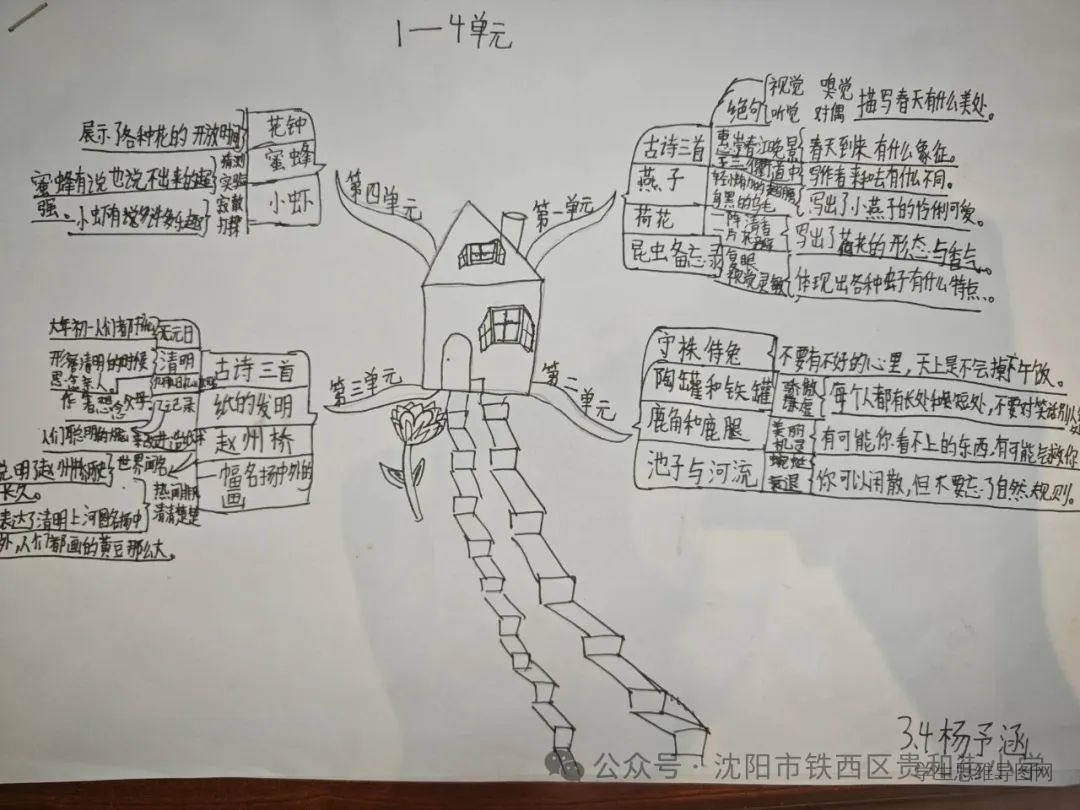 1—4单元
第一单元
古诗三首
绝句
视觉 嗅觉
听觉 对偶
描写春天有什么美处。
惠崇春江晚景
春天到来有什么象征。
三衢道中
写作者来和去有什么不同。
燕子
写出了小燕子的伶俐可爱。
荷花
一阵清香
一片荷花
写出了荷花的形态与香气。
昆虫备忘录
复眼
视觉灵敏
体现出各种虫子有什么特点。
第二单元
守株待兔
不要有不好的心里,天上是不会掉下午饭。
陶罐和铁罐
骄傲
谦虚
每个人都有长处和短处,不要对笑话别人
鹿角和鹿腿
美丽
机灵
有可能你看不上的东西,有可能会救你
池子与河流
衰退
你可以闲散,但不要忘了自然规则。
第三单元
古诗三首
元日
大年初一人们都
清明
形容清明的时候
思念亲人。
作者思念父母。
纸的发明
记录
人们聪明的
赵州桥
世界闻名
说明赵州桥历史
长久。
一幅名扬中外的
画
热闹
清清楚楚
表达了清明上河图名扬中
外,人们都画的黄豆那么大。
第四单元
花钟
展示了各种花的开放时间
蜜蜂
猜测
实验
蜜蜂有说也说不出来的超
强。
小虾
小虾有许多许多乐趣
3.4杨予涵
公众号·沈阳市铁西区贵和
学生思维导图网